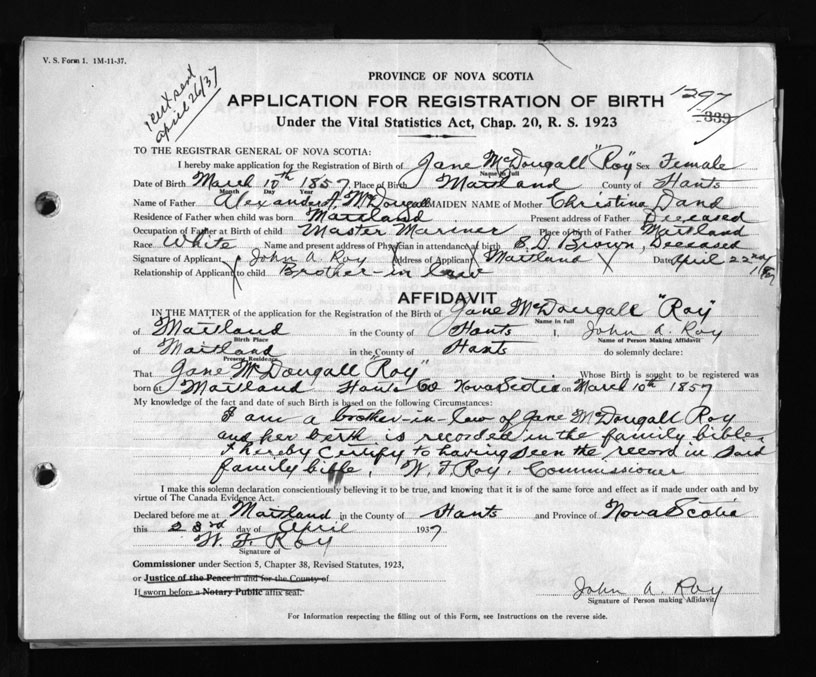 V. S. Form 1. 1M-11-37.
cert sent
april 26/37
PROVINCE OF NOVA SCOTIA
APPLICATION FOR REGISTRATION OF BIRTH
1297
339
Under the Vital Statistics Act, Chap. 20, R. S. 1923
TO THE REGISTRAR GENERAL OF NOVA SCOTIA:
I hereby make application for the Registration of Birth of Jane McDougall "Roy" Sex Female
Name in full
Date of Birth March 10th 1857, Place of Birth Maitland County of Hants
Month Day Year
Name of Father Alexander McDougall MAIDEN NAME of Mother Christina Dand
Residence of Father when child was born Maitland Present address of Father Deceased
Occupation of Father at Birth of child Master Mariner Place of birth of Father Maitland
Race White Name and present address of Physician in attendance at birth B. D. Brown, Deceased
Signature of Applicant John A. Roy Address of Applicant Maitland Date April 22nd 1937
Relationship of Applicant to child Brother-in law
AFFIDAVIT
IN THE MATTER of the application for the Registration of the Birth of Jane McDougall "Roy"
Name in full
of Maitland in the County of Hants I, John A. Roy
Birth Place Name of Person Making Affidavit
of Maitland in the County of Hants do solemnly declare:
Present Residence
That Jane McDougall "Roy" Whose Birth is sought to be registered was
born at Maitland Hants Co Nova Scotia on March 10th 1857
My knowledge of the fact and date of such Birth is based on the following Circumstances:
I am a brother-in-law of Jane McDougall Roy
and her berth is recorded in the family bible.
I hereby certify to having seen the record in said
family bible. W. F. Roy. Commissioner
I make this solemn declaration conscientiously believing it to be true, and knowing that it is of the same force and effect as if made under oath and by
virtue of The Canada Evidence Act.
Declared before me at Maitland in the County of Hants and Province of Nova Scotia
this 23rd day of April 1937
W. F. Roy
Signature of
Commissioner under Section 5, Chapter 38, Revised Statutes, 1923,
or Justice of the Peace in and for the County of
If sworn before a Notary Public affix seal.
John A. Roy
Signature of Person making Affidavit
For Information respecting the filling out of this Form, see Instructions on the reverse side.